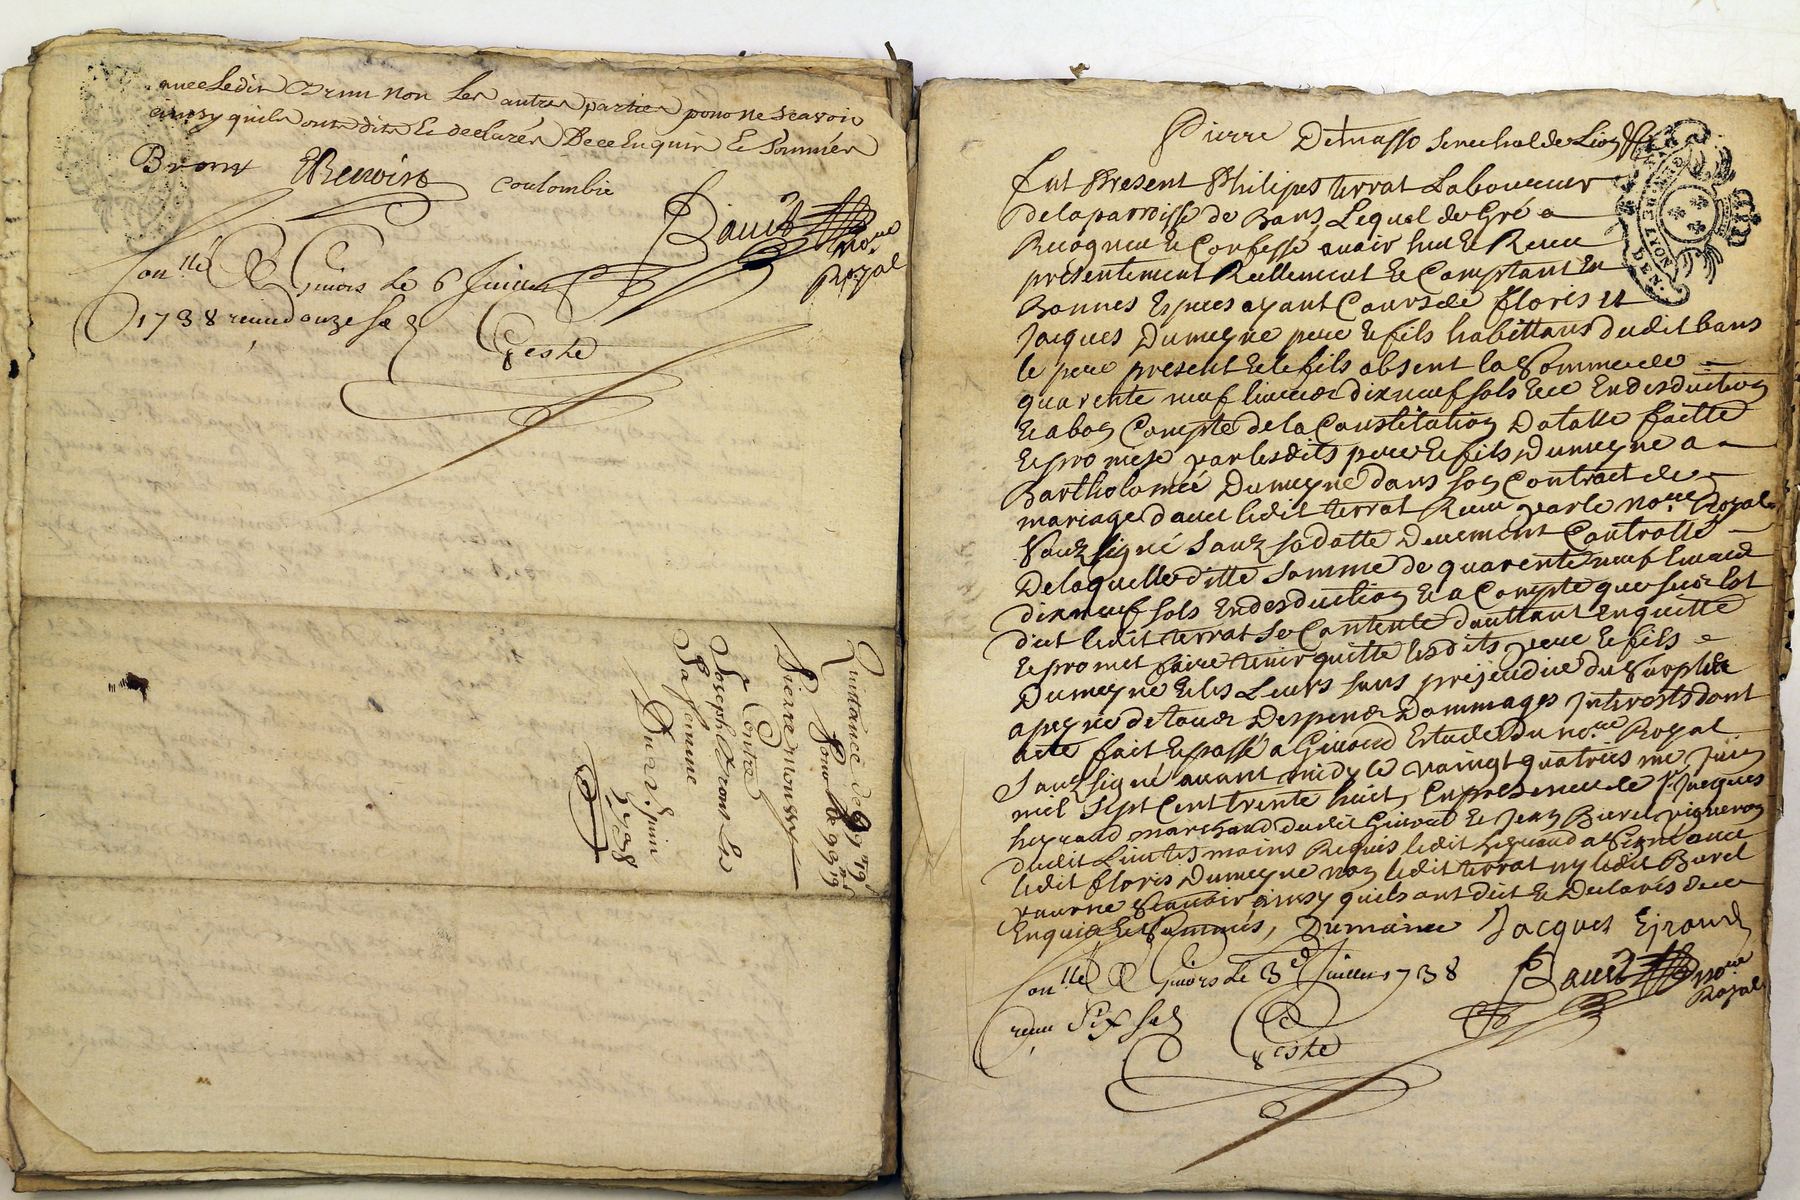 avec ledit Brun non les autres parties pour ne scavoir
ainsy quils ont dit et declarés de ce enquis et sommés
Brun Benoist coulombie
Bauit
no.re
Royal
Con.llé A Givors le 6 Juillet
1738 reçu douze s.
Geste
Quittance de
Pierre
Contre
Joseph Broun et
Sa femme
Du 21 Juin
1738
Pierre Demasso Senechal de Lion
Fut Present Philipes terrat Laboureur
de la parroisse de Bans, Lequel de Gré a
Recogneu et Confesse avoir heu et Receu
presentement Reellement et Comptant En
Bonnes Especes ayant Cours de floris et
Jacques Dumeyne pere et fils habittans dudit bans
le pere present et le fils absent la Somme de
quarente neuf livres dix neuf sols Et ce En desduction
et a bon Compte de la Constitution Dotalle faitte
et promise par lesdits pere et fils Dumeyne a
Bartholomée Dumeyne dans son Contract de
mariage d'avec ledit terrat Receu par le no.re Royal
Soubsigné soubz sa datte Deuement Controllé
De laquelle ditte somme de quarente neuf livres
dix neuf sols En desduction et a Compte que susdit est
ledit terrat se Contente d'auttant En quitte
et promet faire tenir quitte lesdits pere et fils
Dumeyne et les Leurs sans prejudice du Surplus
a peyne de tous Despens Dommages Interests dont
acte fait et passé a Givord Estude du no.re Royal
Soubsigné avant midy le vaingt quatries me Juin
mil Sept Cent trente huit, En presence de S.r Jacques
marchand dudit Givord et Jean Burel vigneron
dudit Lieu tesmoins Requis ledit a Signé avec
ledit floris Dumeyne non ledit terrat ny ledit Burel
pour ne Scavoir ainsy quils ont dit et Declarés de ce
Enquis et Sommés, Dumaine Jacques Ejraud
Con.llé A Givors le 3.e Juillet 1738
Bauit no.re
Royal
reçu Six sols
Geste